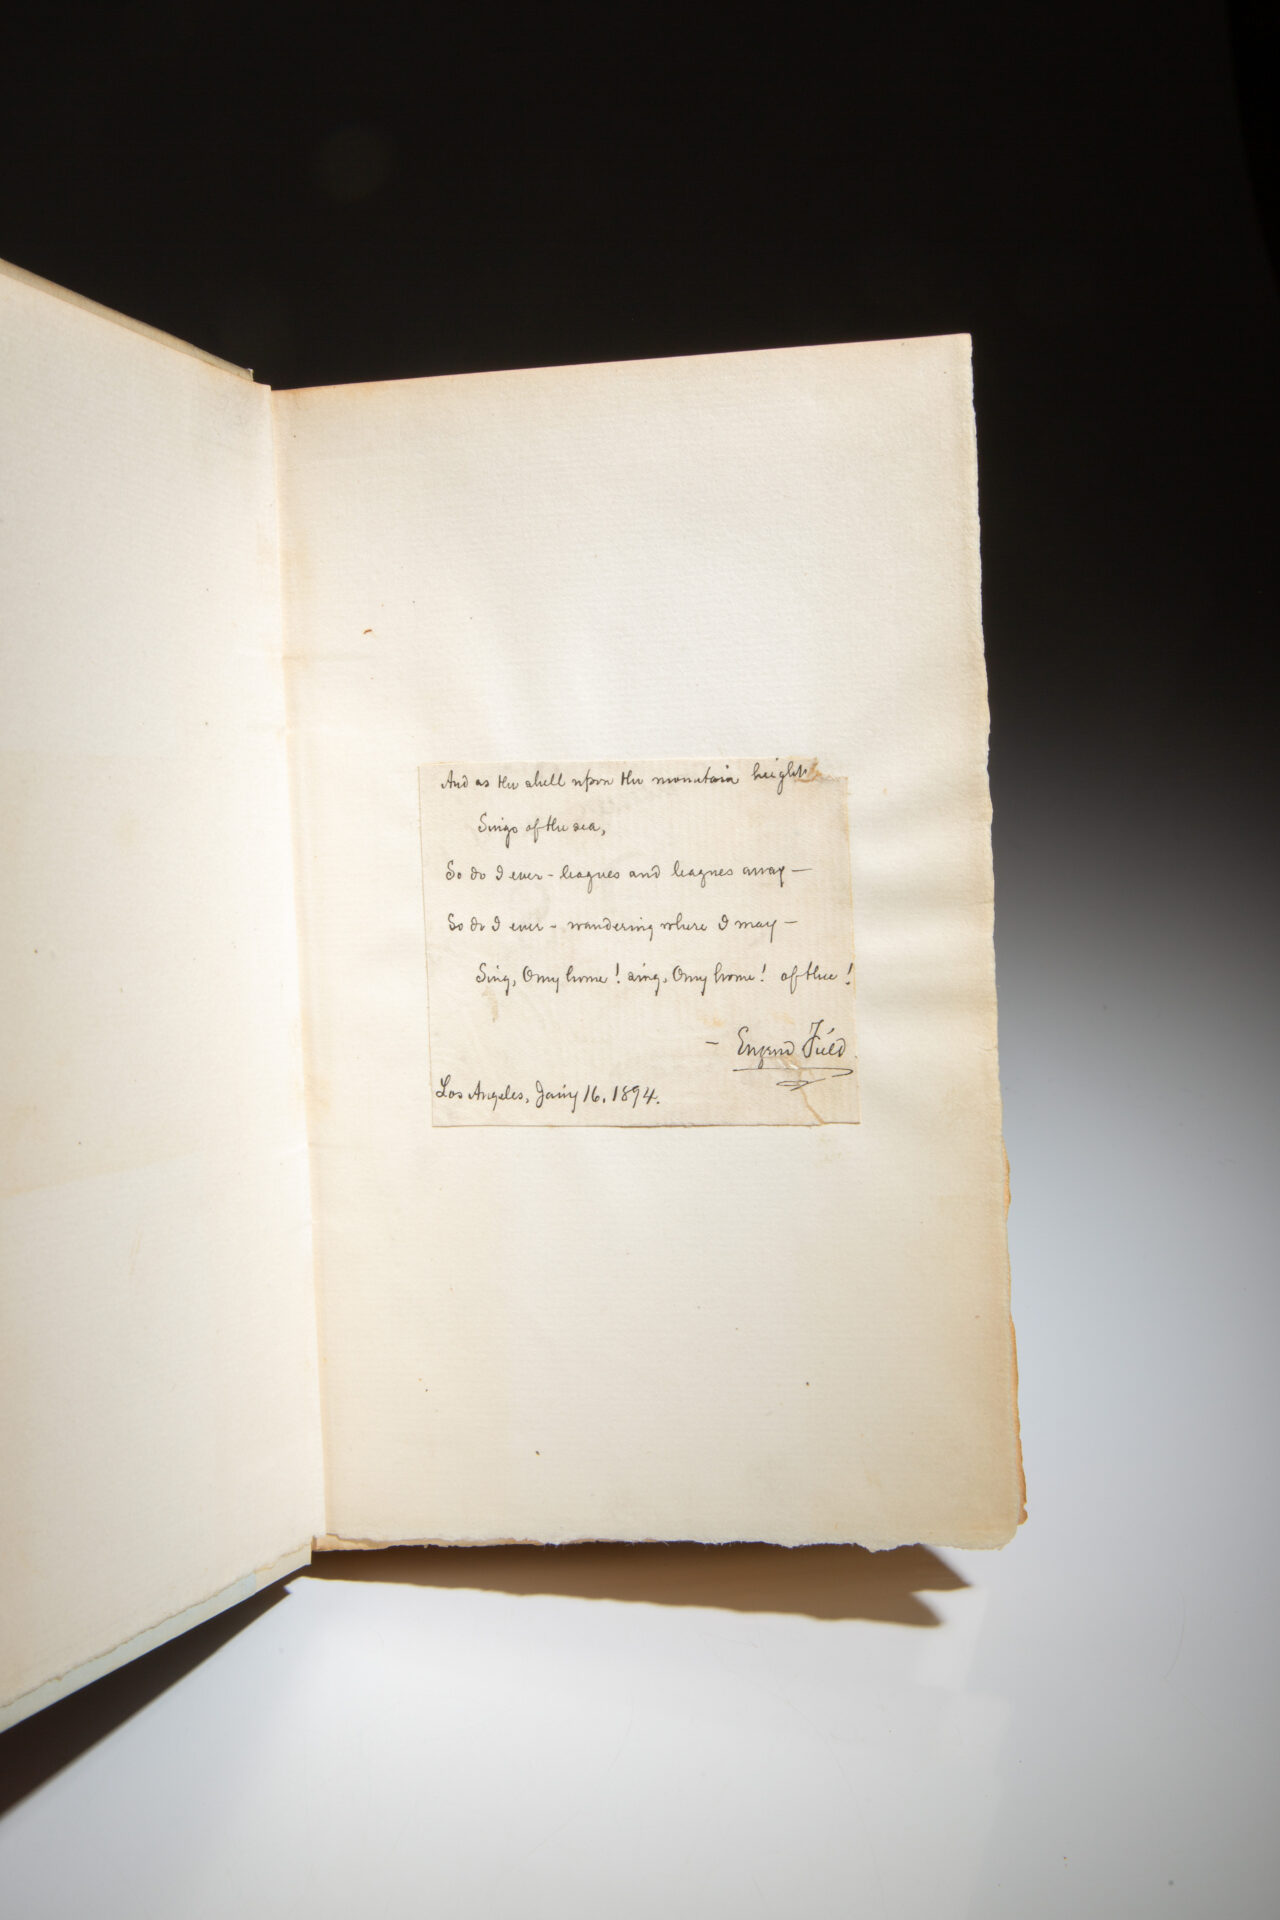 And as the shell upon the mountain height
Sings of the sea,
So do I ever - leagues and leagues away —
So do I ever - wandering where I may —
Sing, O my home! sing, O my home! of thee!
- Eugene Field.
Los Angeles, Jan'y 16, 1894.